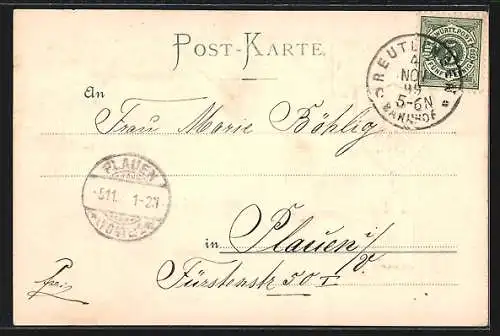 POST-KARTE.
REUTLINGEN
4
NOV
99
5-6N
BAHNHOF
An
Frau Marie Böhlig
PLAUEN
5.11.
1-2N
(VOGTL.)
in Plauen i/V.
Fürstenstr 50 I
frei